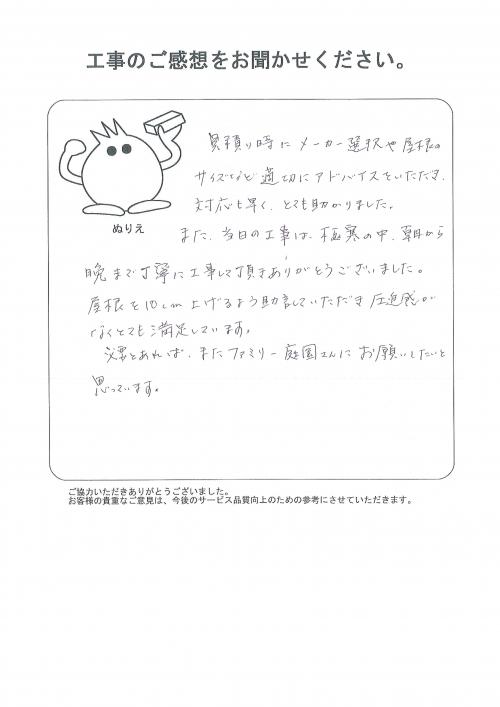 工事のご感想をお聞かせください。
見積り時にメーカー選択や屋根の
サイズなど適切にアドバイスをいただき、
対応も早く、とても助かりました。
ぬりえ
また、当日の工事は、極寒の中、朝から
晩まで丁寧に工事して頂きありがとうございました。
屋根を10cm上げるよう助言していただき圧迫感が
なくとても満足しています。
必要とあれば、またファミリー庭園さんにお願いしたいと
思っています。
ご協力いただきありがとうございました。
お客様の貴重なご意見は、今後のサービス品質向上のための参考にさせていただきます。